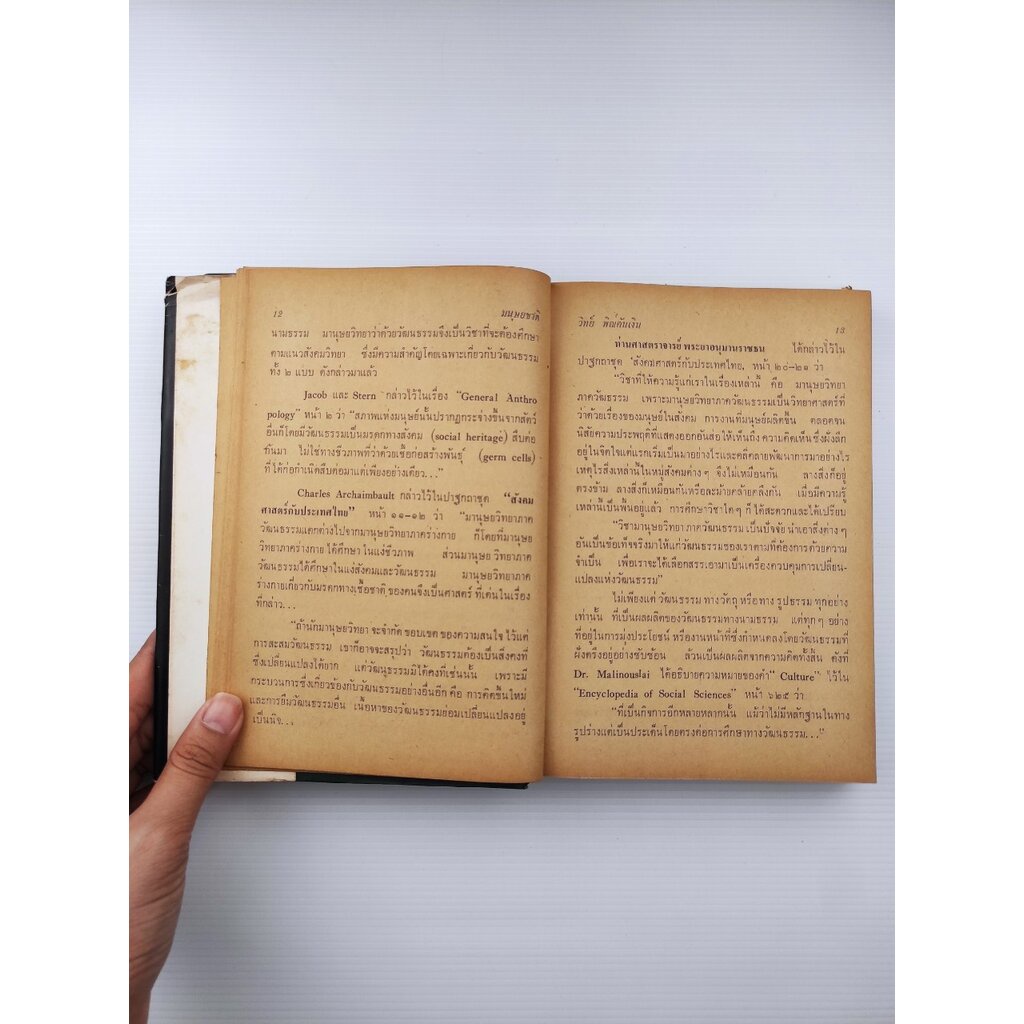 12 มนุษยชาติ
นามธรรม มานุษยวิทยาว่าด้วยวัฒนธรรมจึงเป็นวิชาที่จะต้องศึกษา
ตามแนวสังคมวิทยา ซึ่งมีความสำคัญโดยเฉพาะเกี่ยวกับวัฒนธรรม
ทั้ง ๒ แบบ ดังกล่าวมาแล้ว
Jacob และ Stern กล่าวไว้ในเรื่อง "General Anthro
pology" หน้า ๒ ว่า "สภาพแห่งมนุษย์นั้นปรากฏกระจ่างขึ้นจากสัตว์
อื่นก็โดยมีวัฒนธรรมเป็นมรดกทางสังคม (social heritage) สืบต่อ
กันมา ไม่ใช่ทางชีวภาพที่ว่าด้วยเชื้อก่อสร้างพันธุ์ (germ cells)
ที่ได้ก่อกำเนิดสืบต่อมาแต่เพียงอย่างเดียว..."
Charles Archaimbault กล่าวไว้ในปาฐกถาชุด "สังคม
ศาสตร์กับประเทศไทย" หน้า ๑๑–๑๒ ว่า "มานุษยวิทยาภาค
วัฒนธรรมแตกต่างไปจากมานุษยวิทยาภาคร่างกาย ก็โดยที่มานุษย
วิทยาภาคร่างกายได้ศึกษาในแง่ชีวภาพ ส่วนมานุษยวิทยาภาค
วัฒนธรรมได้ศึกษาในแง่สังคมและวัฒนธรรม มานุษยวิทยาภาค
ร่างกายเกี่ยวกับมรดกทางเชื้อชาติ ของคนจึงเป็นศาสตร์ ที่เด่นในเรื่อง
ที่กล่าว...
"ถ้านักมานุษยวิทยา จะจำกัด ขอบเขต ของความสนใจ ไว้แค่
การสะสมวัฒนธรรม เขาก็อาจจะสรุปว่า วัฒนธรรมต้องเป็นสิ่งคงที่
ซึ่งเปลี่ยนแปลงได้ยาก แต่วัฒนธรรมมิได้คงที่เช่นนั้น เพราะมี
กระบวนการซึ่งเกี่ยวข้องกับวัฒนธรรมอย่างอื่นอีก คือ การคิดขึ้นใหม่
และการยืมวัฒนธรรมอื่น เนื้อหาของวัฒนธรรมย่อมเปลี่ยนแปลงอยู่
เป็นนิจ...
วิทย์ พิณคันเงิน 13
ท่านศาสตราจารย์ พระยาอนุมานราชธน ได้กล่าวไว้ใน
ปาฐกถาชุด 'สังคมศาสตร์กับประเทศไทย, หน้า ๒๐–๒๑ ว่า
"วิชาที่ให้ความรู้แก่เราในเรื่องเหล่านี้ คือ มานุษยวิทยา
ภาควัฒนธรรม เพราะมานุษยวิทยาภาควัฒนธรรมเป็นวิทยาศาสตร์ที่
ว่าด้วยเรื่องของมนุษย์ในสังคม การงานที่มนุษย์ผลิตขึ้น ตลอดจน
นิสัยความประพฤติที่แสดงออกอันส่อให้เห็นถึง ความคิดเห็น ซึ่งฝังลึก
อยู่ในจิตใจแต่แรกเริ่มเป็นมาอย่างไรและคลี่คลายพัฒนาการมาอย่างไร
เหตุไรสิ่งเหล่านี้ในหมู่สังคมต่าง ๆ จึงไม่เหมือนกัน ลางสิ่งก็อยู่
ตรงข้าม ลางสิ่งก็เหมือนกันหรือละม้ายคล้ายคลึงกัน เมื่อมีความรู้
เหล่านี้เป็นพื้นอยู่แล้ว การศึกษาวิชาใด ๆ ก็ได้สะดวกและได้เปรียบ
"วิชามานุษยวิทยาภาควัฒนธรรม เป็นปัจจัย นำเอาสิ่งต่าง ๆ
อันเป็นข้อเท็จจริงมาให้แก่วัฒนธรรมของเราตามที่ต้องการด้วยความ
จำเป็น เพื่อเราจะได้เลือกสรรเอามาเป็นเครื่องควบคุมการเปลี่ยน-
แปลงแห่งวัฒนธรรม"
ไม่เพียงแต่ วัฒนธรรม ทางวัตถุ หรือทาง รูปธรรม ทุกอย่าง
เท่านั้น ที่เป็นผลผลิตของวัฒนธรรมทางนามธรรม แต่ทุก ๆ อย่าง
ที่อยู่ในการมุ่งประโยชน์ หรืองานหน้าที่ซึ่งกำหนดลงโดยวัฒนธรรมที่
ฝังตรึงอยู่อย่างซับซ้อน ล้วนเป็นผลผลิตจากความคิดทั้งสิ้น ดังที่
Dr. ได้อธิบายความหมายของคำ "Culture" ไว้ใน
"Encyclopedia of Social Sciences" หน้า ๖๒๕ ว่า
"ที่เป็นกิจการอีกหลายหลากนั้น แม้ว่าไม่มีหลักฐานในทาง
รูปร่างแต่เป็นประเด็นโดยตรงต่อการศึกษาทางวัฒนธรรม..."